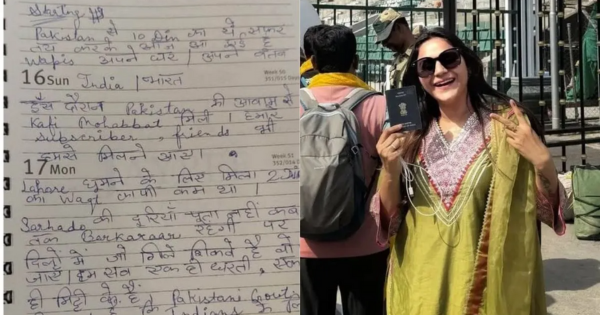 Starting
Pakistan से 10 Din का ये सफर
तय करके आज आ रहे है
Wapis अपने घर। अपने वतन
16 Sun India । भारत Week 50
इस दौरान Pakistan की आवाम से
Kafi Mohabbat मिली। हमारे
Subscriber, friends भी
हमसे मिलने आए।
17 Mon Week 51
Lahore घूमने के लिए मिला 2 दिन
का Waqt काफी कम था।
Sarhado की दूरियाँ पता नहीं कब
तक Barkaraar रहेगी पर
दिलों में जो गिले शिकवे है
जाएं। हम सब एक ही धरती, एक
ही मिट्टी के है।
कि Pakistani Govt
Indians के